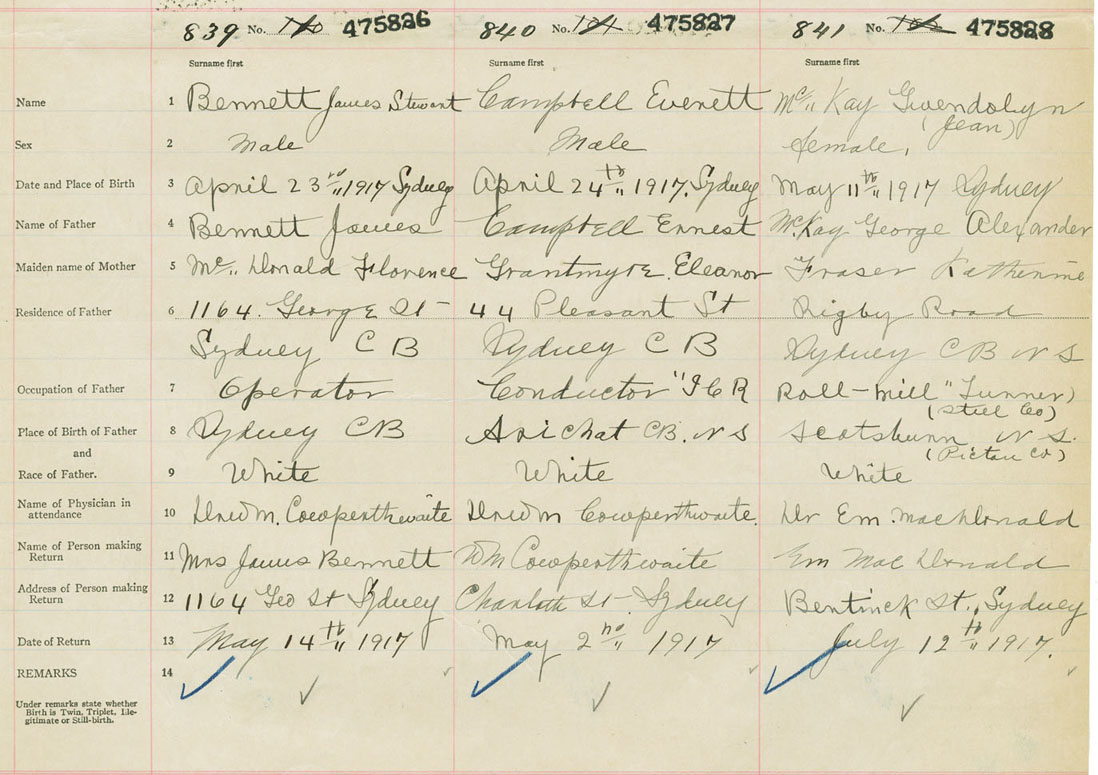 839 No. 475826 840 No. 475827 841 No. 475828
Surname first Surname first Surname first
Name 1 Bennett James Stewart Campbell Everett McKay Gwendolyn
(Jean)
Sex 2 Male Male female,
Date and Place of Birth 3 April 23rd 1917 Sydney April 24th 1917. Sydney May 11th 1917 Sydney
Name of Father 4 Bennett James Campbell Ernest McKay George Alexander
Maiden name of Mother 5 McDonald Florence Grantmyre Eleanor Fraser Katherine
Residence of Father 6 1164. George St 44 Pleasant St Rigby Road
Sydney C B Sydney C B Sydney CB N S
Occupation of Father 7 Operator Conductor "I C R Roll-mill "Turner)
(Steel Co)
Place of Birth of Father 8 Sydney CB Arichat CB. N S Scotsburn N S.
and (Pictou Co)
Race of Father. 9 White White White
Name of Physician in
attendance 10 Cowperthwaite Cowperthwaite. Dr Em. MacDonald
Name of Person making
Return 11 Mrs James Bennett Cowperthwaite Em MacDonald
Address of Person making
Return 12 1164 Geo St Sydney Charlotte St - Sydney Bentinck St., Sydney
Date of Return 13 May 14th 1917 May 2nd 1917 July 12th 1917.
REMARKS 14
Under remarks state whether
Birth is Twin, Triplet, Ille-
gitimate or Still-birth.